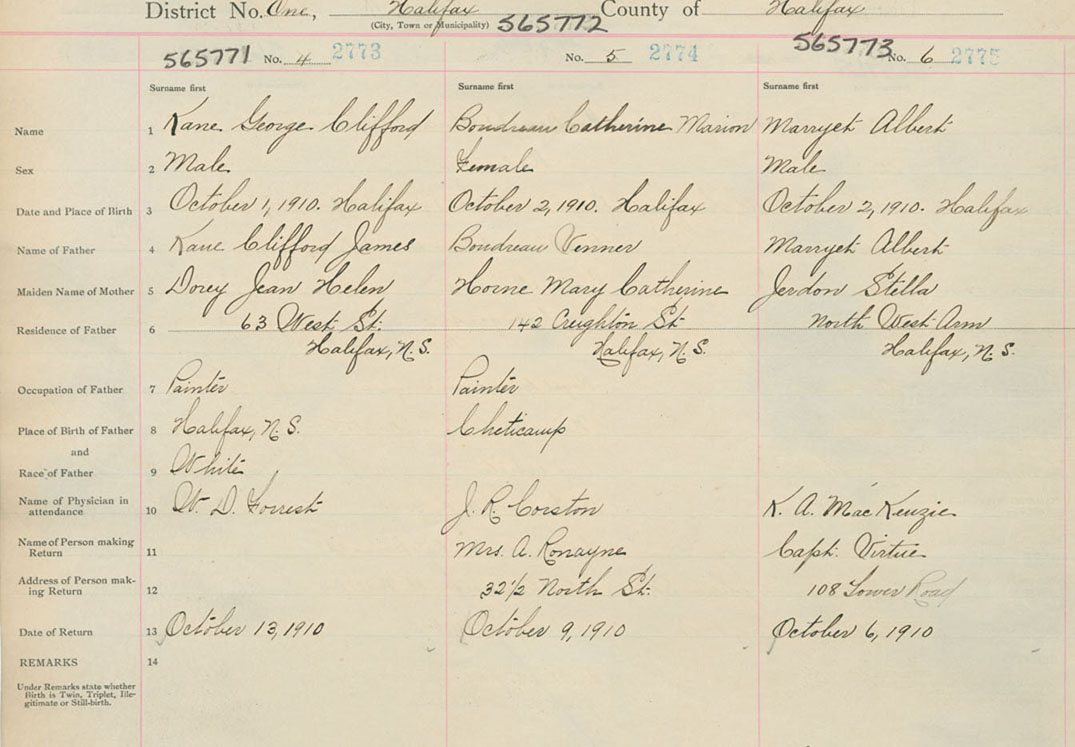 District No. One, Halifax County of Halifax
(City, Town or Municipality)
565771 No. 4 2773 565772 No. 5 2774 565773 No. 6 2775
Surname first Surname first Surname first
Name 1 Kane George Clifford Boudreau Catherine Marion Marryett Albert
Sex 2 Male Female Male
Date and Place of Birth 3 October 1, 1910. Halifax October 2, 1910. Halifax October 2, 1910. Halifax
Name of Father 4 Kane Clifford James Boudreau Venner Marryett Albert
Maiden Name of Mother 5 Dorey Jean Helen Horne Mary Catherine Jerdon Stella
Residence of Father 6 63 West St. 142 Creighton St North West Arm
Halifax, N.S. Halifax, N.S. Halifax, N.S.
Occupation of Father 7 Painter Painter
Place of Birth of Father 8 Halifax, N.S. Cheticamp
and
Race of Father 9 White
Name of Physician in
attendance 10 W. D. Forrest J. R. Corston K. A. MacKenzie
Name of Person making
Return 11 Mrs. A. Ronayne Capt. Virtue
Address of Person mak-
ing Return 12 32 1/2 North St. 108 Lower Road
Date of Return 13 October 13, 1910 October 9, 1910 October 6, 1910
REMARKS 14
Under Remarks state whether
Birth is Twin, Triplet, Ille-
gitimate or Still-birth.